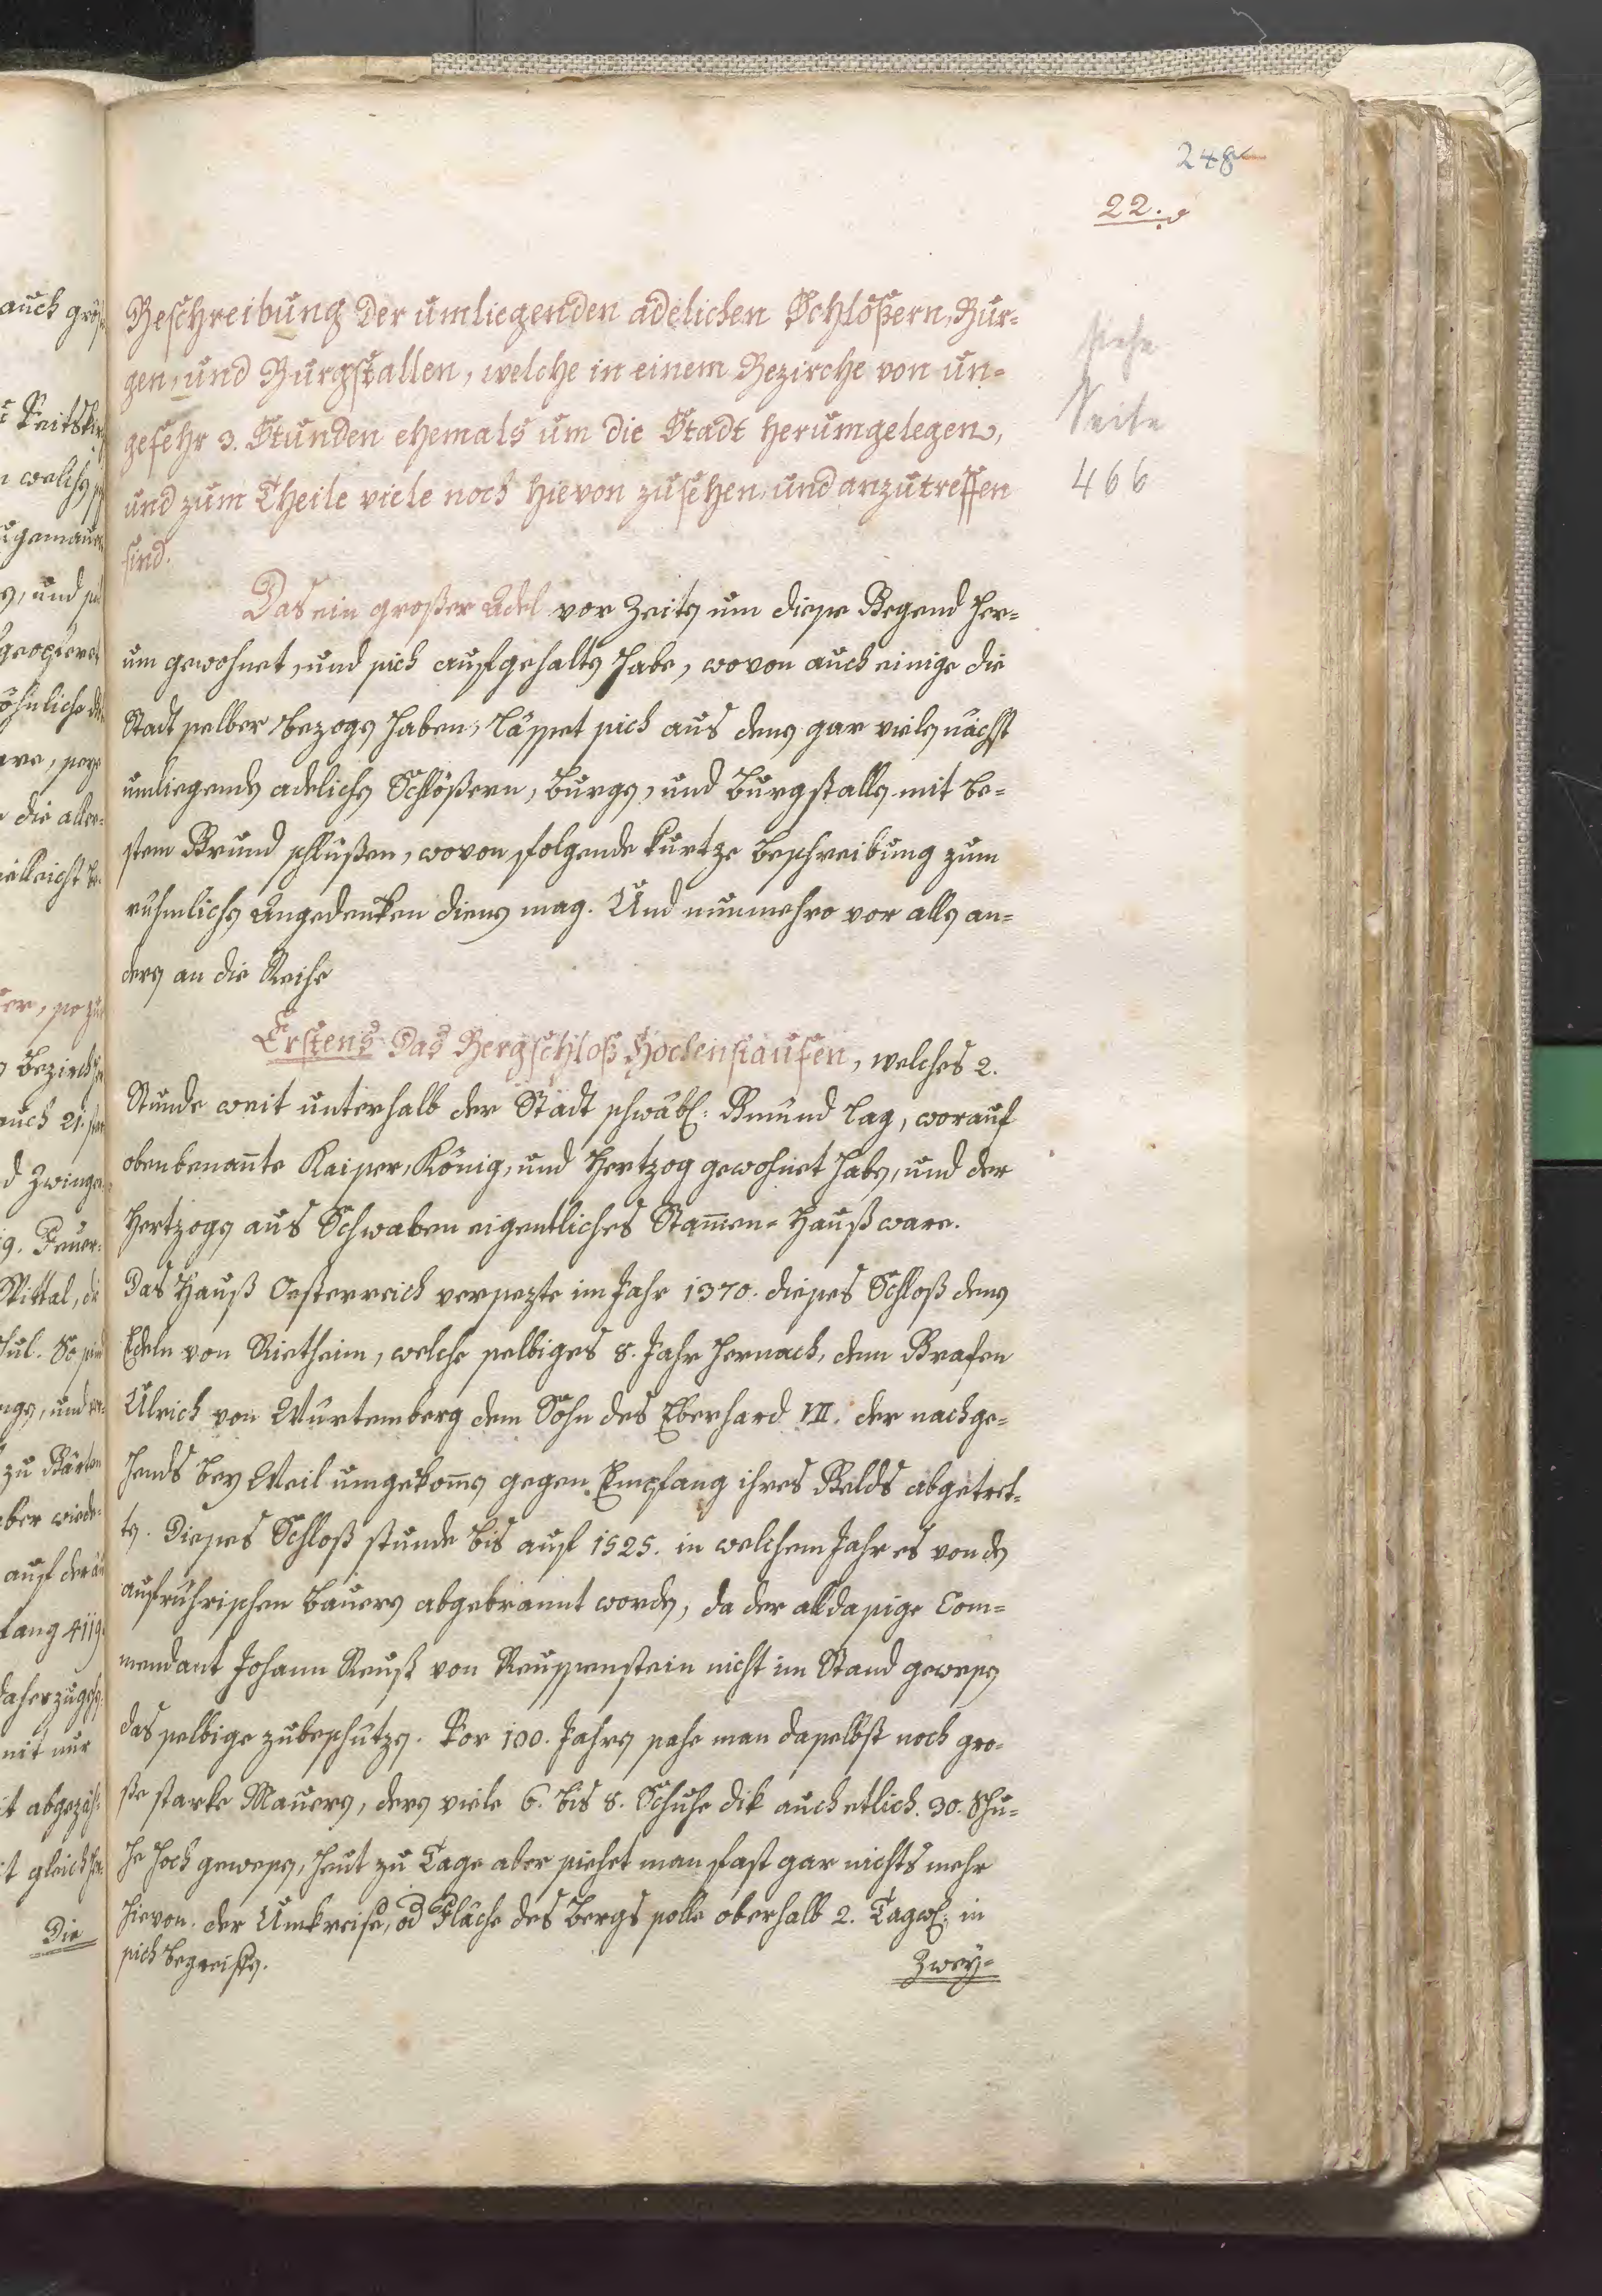 248
22.
Beschreibung der umliegenden adelichen Schlößern, Bur-
gen, und Burgstallen, welche in einem Bezirche von un-
gefehr 3. Stunden ehemals um die Stadt herumgelegen,
und zum Theile viele noch hievon zusehen, und anzutreffen
sind.
siehe
Seite
466
Das ein großer Adel vor Zeiten um diese Gegend her-
um gewohnet, und sich aufgehalten habe, wovon auch einige die
Stadt selber bezogen haben, lässet sich aus denen gar vielen nächst
umliegenden adelichen Schlößern, Burgen, und Burgstallen mit be-
stem Grund schlüßen, wovon folgende kurtze Beschreibung zum
rühmlichen Angedenken dienen mag. Und nunmehro vor allen an-
deren an die Reihe
Erstens Das Bergschloß Hochenstaufen, welches 2.
Stunde weit unterhalb der Stadt schwäbl: Gmünd lag, worauf
obenbenan̄te Kaiser, König, und Hertzog gewohnet haben, und der
Hertzogen aus Schwaben eigentliches Stam̄en-Hauß ware.
Das Hauß Oesterreich versezte im Jahr 1370. dieses Schloß denen
Edeln von Rietheim, welche selbiges 8. Jahr hernach, dem Grafen
Ulrich von Würtemberg dem Sohn des Eberhard VII. der nachge-
hends bey Weil umgekom̄en gegen Empfang ihres Gelds abgetret-
ten. Dieses Schloß stunde bis auf 1525. in welchem Jahr es von den
aufrührischen Bauern abgebrannt worden, da der alldasige Com-
mendant Johann Reuß von Reussenstein nicht im Stand gewesen
das selbige zubeschützen. Vor 100. Jahren sahe man daselbst noch gro-
ße starke Mauern, deren viele 6. bis 8. Schuhe dik auch etlich. 30. Schu-
he hoch gewesen, heut zu Tage aber siehet man fast gar nichts mehr
hievon. der Umkreise, od Fläche des Bergs solle oberhalb 2. Tagw: in
sich begreiffen.
Zwey-